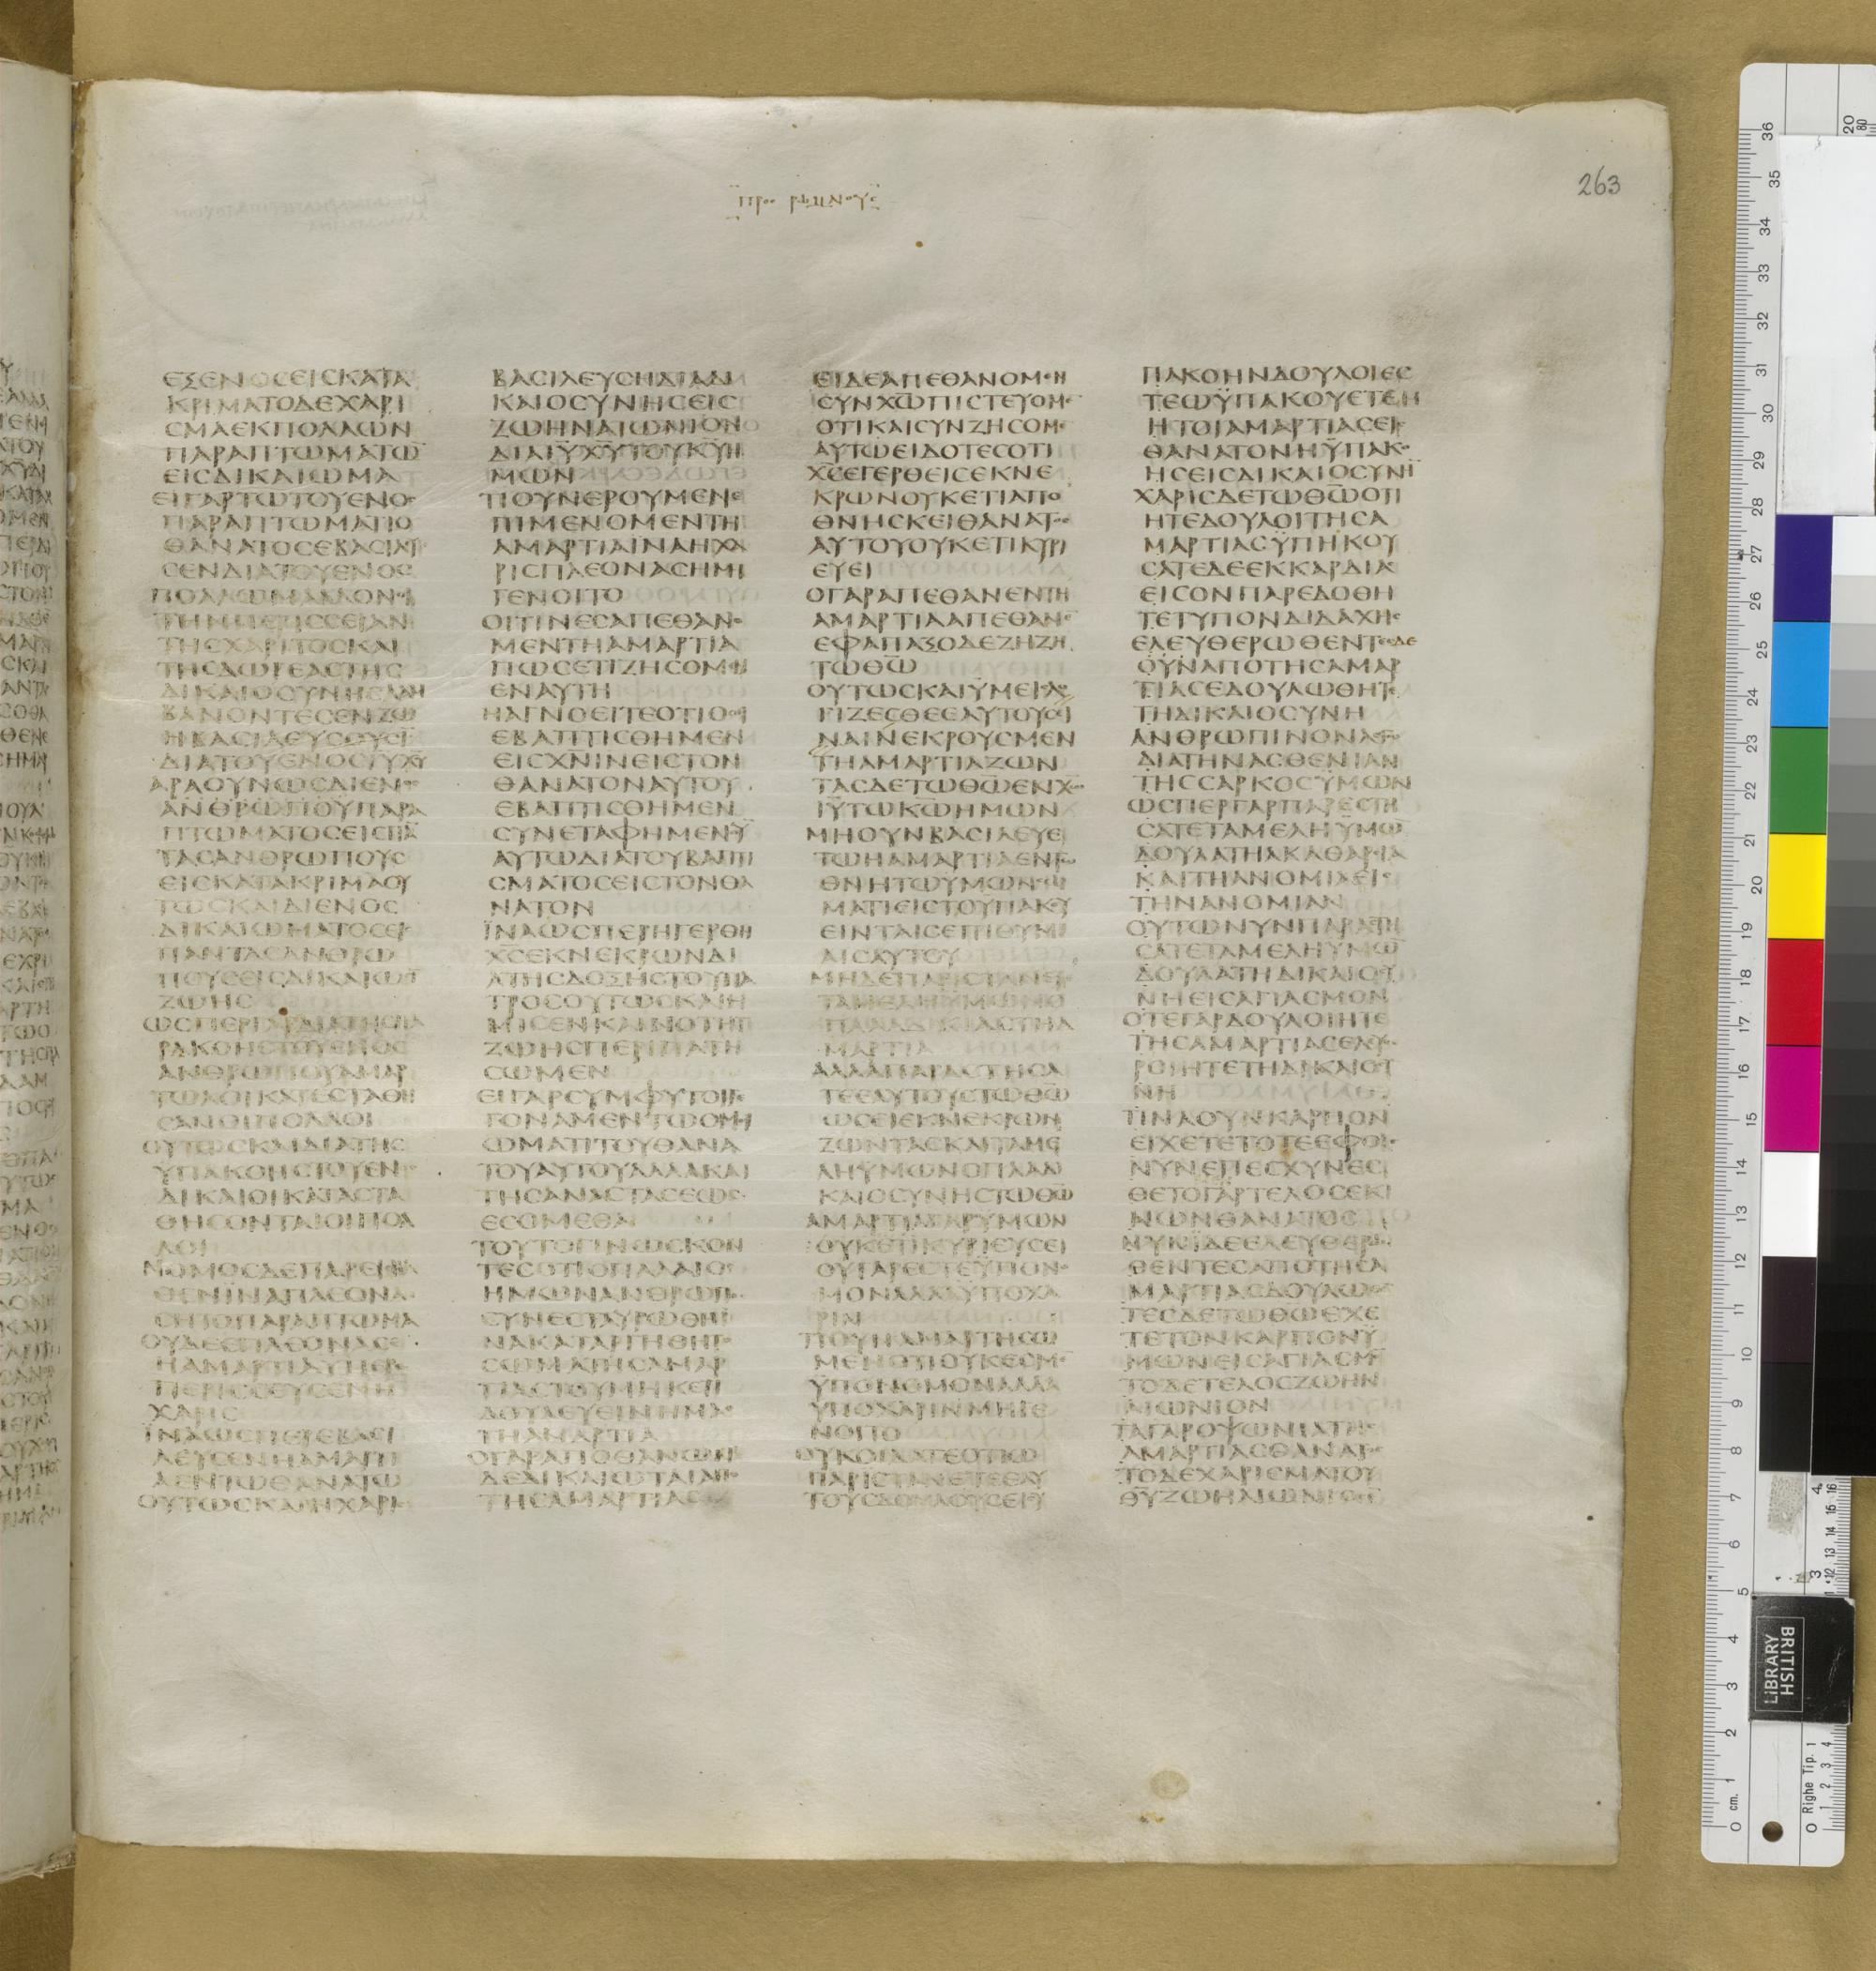 ΕΞΕΝΟϹΕΙϹΚΑΤΑ
ΚΡΙΜΑΤΟΔΕΧΑΡΙ
ϹΜΑΕΚΠΟΛΛΩΝ
ΠΑΡΑΠΤΩΜΑΤΩ̅
ΕΙϹΔΙΚΑΙΩΜΑ
ΕΙΓΑΡΤΩΤΟΥΕΝΟϹ
ΠΑΡΑΠΤΩΜΑΤΙΟ
ΘΑΝΑΤΟϹΕΒΑϹΙΛΕΥ
ϹΕΝΔΙΑΤΟΥΕΝΟϹ
ΠΟΛΛΩΜΑΛΛΟΝΟΙ
ΤΗΝΠΕΡΙϹϹΕΙΑΝ
ΤΗϹΧΑΡΙΤΟϹΚΑΙ
ΤΗϹΔΩΡΕΑϹΤΗϹ
ΔΙΚΑΙΟϹΥΝΗϹΛΑΜ
ΒΑΝΟΝΤΕϹΕΝΖΩ
ΗΒΑϹΙΛΕΥϹΟΥϹΙ̅
ΔΙΑΤΟΥΕΝΟϹΙ̅Υ̅Χ̅Υ̅
ΑΡΑΟΥΝΩϹΔΙΕΝΟϹ
ΑΝΘΡΩΠΟΥΠΑΡΑ
ΠΤΩΜΑΤΟϹΕΙϹΠΑ̅
ΤΑϹΑΝΘΡΩΠΟΥϹ
ΕΙϹΚΑΤΑΚΡΙΜΑΟΥ
ΤΩϹΚΑΙΔΙΕΝΟϹ
ΔΙΚΑΙΩΜΑΤΟϹΕΙϹ
ΠΑΝΤΑϹΑΝΘΡΩ
ΠΟΥϹΕΙϹΔΙΚΑΙΩϹΙ̅
ΖΩΗϹ
ΩϹΠΕΡΓΑΡΔΙΑΤΗϹΠΑ
ΡΑΚΟΗϹΤΟΥΕΝΟϹ
ΑΝΘΡΩΠΟΥΑΜΑΡ
ΤΩΛΟΙΚΑΤΕϹΤΑΘΗ
ϹΑΝΟΙΠΟΛΛΟΙ
ΟΥΤΩϹΚΑΙΔΙΑΤΗϹ
ΫΠΑΚΟΗϹΤΟΥΕΝΟϹ
ΔΙΚΑΙΟΙΚΑΤΑϹΤΑ
ΘΗϹΟΝΤΑΙΟΙΠΟΛ
ΛΟΙ
ΝΟΜΟϹΔΕΠΑΡΕΙϹΗΛ
ΘΕΝΪΝΑΠΛΕΟΝΑ
ϹΗΤΟΠΑΡΑΠΤΩΜΑ
ΟΥΔΕΕΠΛΕΟΝΑϹΕ
ΗΑΜΑΡΤΙΑΥΠΕΡΕ
ΠΕΡΙϹϹΕΥϹΕΝΗ
ΧΑΡΙϹ
ΪΝΑΩϹΠΕΡΕΒΑϹΙ
ΛΕΥϹΕΝΗΑΜΑΡΤΙ
ΑΕΝΤΩΘΑΝΑΤΩ
ΟΥΤΩϹΚΑΙΗΧΑΡΙϹ
ΒΑϹΙΛΕΥϹΗΔΙΑΔΙ
ΚΑΙΟϹΥΝΗϹΕΙϹ
ΖΩΗΝΑΙΩΝΙΟΝ
ΔΙΑΙ̅Υ̅Χ̅Υ̅ΤΟΥΚ̅Υ̅Η
ΜΩΝ
ΤΙΟΥΝΕΡΟΥΜΕΝΕ
ΠΙΜΕΝΟΜΕΝΤΗ
ΑΜΑΡΤΙΑΪΝΑΗΧΑ
ΡΙϹΠΛΕΟΝΑϹΗΜΗ
ΓΕΝΟΙΤΟ
ΟΙΤΙΝΕϹΑΠΕΘΑΝΟ
ΜΕΝΤΗΑΜΑΡΤΙΑ
ΠΩϹΕΤΙΖΗϹΟΜΕΝ
ΕΝΑΥΤΗ
ΗΑΓΝΟΕΙΤΕΟΤΙΟϹΟΙ
ΕΒΑΠΤΙϹΘΗΜΕΝ
ΕΙϹΧ̅Ν̅Ι̅Ν̅ΕΙϹΤΟΝ
ΘΑΝΑΤΟΝΑΥΤΟΥ
ΕΒΑΠΤΙϹΘΗΜΕΝ
ϹΥΝΕΤΑΦΗΜΕΝΟΥ̅
ΑΥΤΩΔΙΑΤΟΥΒΑΠΤΙ
ϹΜΑΤΟϹΕΙϹΤΟΝΘΑ
ΝΑΤΟΝ
ΪΝΑΩϹΠΕΡΗΓΕΡΘΗ
Χ̅Ϲ̅ΕΚΝΕΚΡΩΝΔΙ
ΑΤΗϹΔΟΞΗϹΤΟΥΠΑ
ΤΡΟϹΟΥΤΩϹΚΑΙΗ
ΜΙϹΕΝΚΑΙΝΟΤΗΤΙ
ΖΩΗϹΠΕΡΙΠΑΤΗ
ϹΩΜΕΝ
ΕΙΓΑΡϹΥΜΦΥΤΟΙΓΕ
ΓΟΝΑΜΕΝΤΩΟΜΟΙ
ΩΜΑΤΙΤΟΥΘΑΝΑ
ΤΟΥΑΥΤΟΥΑΛΛΑΚΑΙ
ΤΗϹΑΝΑϹΤΑϹΕΩϹ
ΕϹΟΜΕΘΑ
ΤΟΥΤΟΓΙΝΩϹΚΟΝ
ΤΕϹΟΤΙΟΠΑΛΑΙΟϹ
ΗΜΩΝΑΝΘΡΩΠΟϹ
ϹΥΝΕϹΤΑΥΡΩΘΗΪ
ΝΑΚΑΤΑΡΓΗΘΗΤΟ
ϹΩΜΑΤΗϹΑΜΑΡ
ΤΙΑϹΤΟΥΜΗΚΕΤΙ
ΔΟΥΛΕΥΕΙΝΗΜΑϹ
ΤΗΑΜΑΡΤΙΑ
ΟΓΑΡΑΠΟΘΑΝΩΝ
ΔΕΔΙΚΑΙΩΤΑΙΑΠΟ
ΤΗϹΑΜΑΡΤΙΑϹ
ΕΙΔΕΑΠΕΘΑΝΟΜΕΝ
ϹΥΝΧ̅Ω̅ΠΙϹΤΕΥΟΜΕ̅
ΟΤΙΚΑΙϹΥΝΖΗϹΟΜΕ̅
ΑΥΤΩΕΙΔΟΤΕϹΟΤΙ
Χ̅Ϲ̅ΕΓΕΡΘΕΙϹΕΚΝΕ
ΚΡΩΝΟΥΚΕΤΙΑΠΟ
ΘΝΗϹΚΕΙΘΑΝΑΤΟϹ
ΑΥΤΟΥΟΥΚΕΤΙΚΥΡΙ
ΕΥΕΙ
ΟΓΑΡΑΠΕΘΑΝΕΝΤΗ
ΑΜΑΡΤΙΑΑΠΕΘΑΝΕ̅
ΕΦΑΠΑΞΟΔΕΖΗΖΗ
ΤΩΘ̅Ω̅
ΟΥΤΩϹΚΑΙΫΜΕΙϹΛΟ
ΓΙΖΕϹΘΕΕΑΥΤΟΥϹΙ
ΝΑΙΝΕΚΡΟΥϹΜΕΝ
ΤΗΑΜΑΡΤΙΑΖΩΝ
ΤΑϹΔΕΤΩΘ̅Ω̅ΕΝΧ̅Ω̅
Ι̅Υ̅ΤΩΚ̅Ω̅ΗΜΩΝ
ΜΗΟΥΝΒΑϹΙΛΕΥΕ
ΤΩΗΑΜΑΡΤΙΑΕΝΤΩ
ΘΝΗΤΩΥΜΩΝϹΩ
ΜΑΤΙΕΙϹΤΟΥΠΑΚΟΥ
ΕΙΝΤΑΙϹΕΠΙΘΥΜΙ
ΑΙϹΑΥΤΟΥ
ΜΗΔΕΠΑΡΙϹΤΑΝΕΤΕ
ΤΑΜΕΛΗΥΜΩΝΟ
ΠΛΑΑΔΙΚΙΑϹΤΗΑ
ΜΑΡΤΙΑ
ΑΛΛΑΠΑΡΑϹΤΗϹΑ
ΤΕΕΑΥΤΟΥϹΤΩΘ̅Ω̅
ΩϹΕΙΕΚΝΕΚΡΩΝ
ΖΩΝΤΑϹΚΑΙΤΑΜΕ
ΛΗΫΜΩΝΟΠΛΑΔΙ
ΚΑΙΟϹΥΝΗϹΤΩΘ̅Ω̅
ΑΜΑΡΤΙΑΓΑΡΥΜΩΝ
ΟΥΚΕΤΙΚΥΡΙΕΥϹΕΙ
ΟΥΓΑΡΕϹΤΕΫΠΟΝΟ
ΜΟΝΑΛΛΑΫΠΟΧΑ
ΡΙΝ
ΤΙΟΥΝΑΜΑΡΤΗϹΩ
ΜΕΝΟΤΙΟΥΚΕϹΜΕ̅
ΫΠΟΝΟΜΟΝΑΛΛΑ
ΥΠΟΧΑΡΙΝΜΗΓΕ
ΝΟΙΤΟ
ΟΥΚΟΙΔΑΤΕΟΤΙΩ
ΠΑΡΙϹΤΑΝΕΤΕΕΑΥ
ΤΟΥϹΔΟΥΛΟΥϹΕΙϹΥ
ΠΑΚΟΗΝΔΟΥΛΟΙΕϹ
ΤΕΩΫΠΑΚΟΥΕΤΕΗ
ΗΤΟΙΑΜΑΡΤΙΑϹΕΙϹ
ΘΑΝΑΤΟΝΗΫΠΑΚΟ
ΗϹΕΙϹΔΙΚΑΙΟϹΥΝΗ̅
ΧΑΡΙϹΔΕΤΩΘ̅Ω̅ΟΤΙ
ΗΤΕΔΟΥΛΟΙΤΗϹΑ
ΜΑΡΤΙΑϹΫΠΗΚΟΥ
ϹΑΤΕΔΕΕΚΚΑΡΔΙΑϹ
ΕΙϹΟΝΠΑΡΕΔΟΘΗ
ΤΕΤΥΠΟΝΔΙΔΑΧΗϹ
ΕΛΕΥΘΕΡΩΘΕΝΤΕϹΔΕ
ΟΥΝΑΠΟΤΗϹΑΜΑΡ
ΤΙΑϹΕΔΟΥΛΩΘΗΤΕ
ΤΗΔΙΚΑΙΟϹΥΝΗ
ΑΝΘΡΩΠΙΝΟΝΛΕΓΩ
ΔΙΑΤΗΝΑϹΘΕΝΙΑΝ
ΤΗϹϹΑΡΚΟϹΫΜΩΝ
ΩϹΠΕΡΓΑΡΠΑΡΕϹΤΗ
ϹΑΤΕΤΑΜΕΛΗΫΜΩ̅
ΔΟΥΛΑΤΗΑΚΑΘΑΡϹΙΑ
ΚΑΙΤΗΑΝΟΜΙΑΕΙϹ
ΤΗΝΑΝΟΜΙΑΝ
ΟΥΤΩΝΥΝΠΑΡΑϹΤΗ
ϹΑΤΕΤΑΜΕΛΗΫΜΩ̅
ΔΟΥΛΑΤΗΔΙΚΑΙΟϹΥ
ΝΗΕΙϹΑΓΙΑϹΜΟΝ
ΟΤΕΓΑΡΔΟΥΛΟΙΗΤΕ
ΤΗϹΑΜΑΡΤΙΑϹΕΛΕΥΘΕ
ΡΟΙΗΤΕΤΗΔΙΚΑΙΟϹΥ
ΝΗ
ΤΙΝΑΟΥΝΚΑΡΠΟΝ
ΕΙΧΕΤΕΤΟΤΕΕΦΟΙϹ
ΝΥΝΕΠΕϹΧΥΝΕϹ
ΘΕΤΟΓΑΡΤΕΛΟϹΕΚΙ
ΝΩΝΘΑΝΑΤΟϹ
ΝΥΝΙΔΕΕΛΕΥΘΕΡΩ
ΘΕΝΤΕϹΑΠΟΤΗϹΑ
ΜΑΡΤΙΑϹΔΟΥΛΩΘΕ̅
ΤΕϹΔΕΤΩΘ̅Ω̅ΕΧΕ
ΤΕΤΟΝΚΑΡΠΟΝΫ
ΜΩΝΕΙϹΑΓΙΑϹΜΟ̅
ΤΟΔΕΤΕΛΟϹΖΩΗΝ
ΑΙΩΝΙΟΝ
ΤΑΓΑΡΟΨΩΝΙΑΤΗϹ
ΑΜΑΡΤΙΑϹΘΑΝΑΤΟϹ
ΤΟΔΕΧΑΡΙϹΜΑΤΟΥ
Θ̅Υ̅ΖΩΗΑΙΩΝΙΟϹ
263